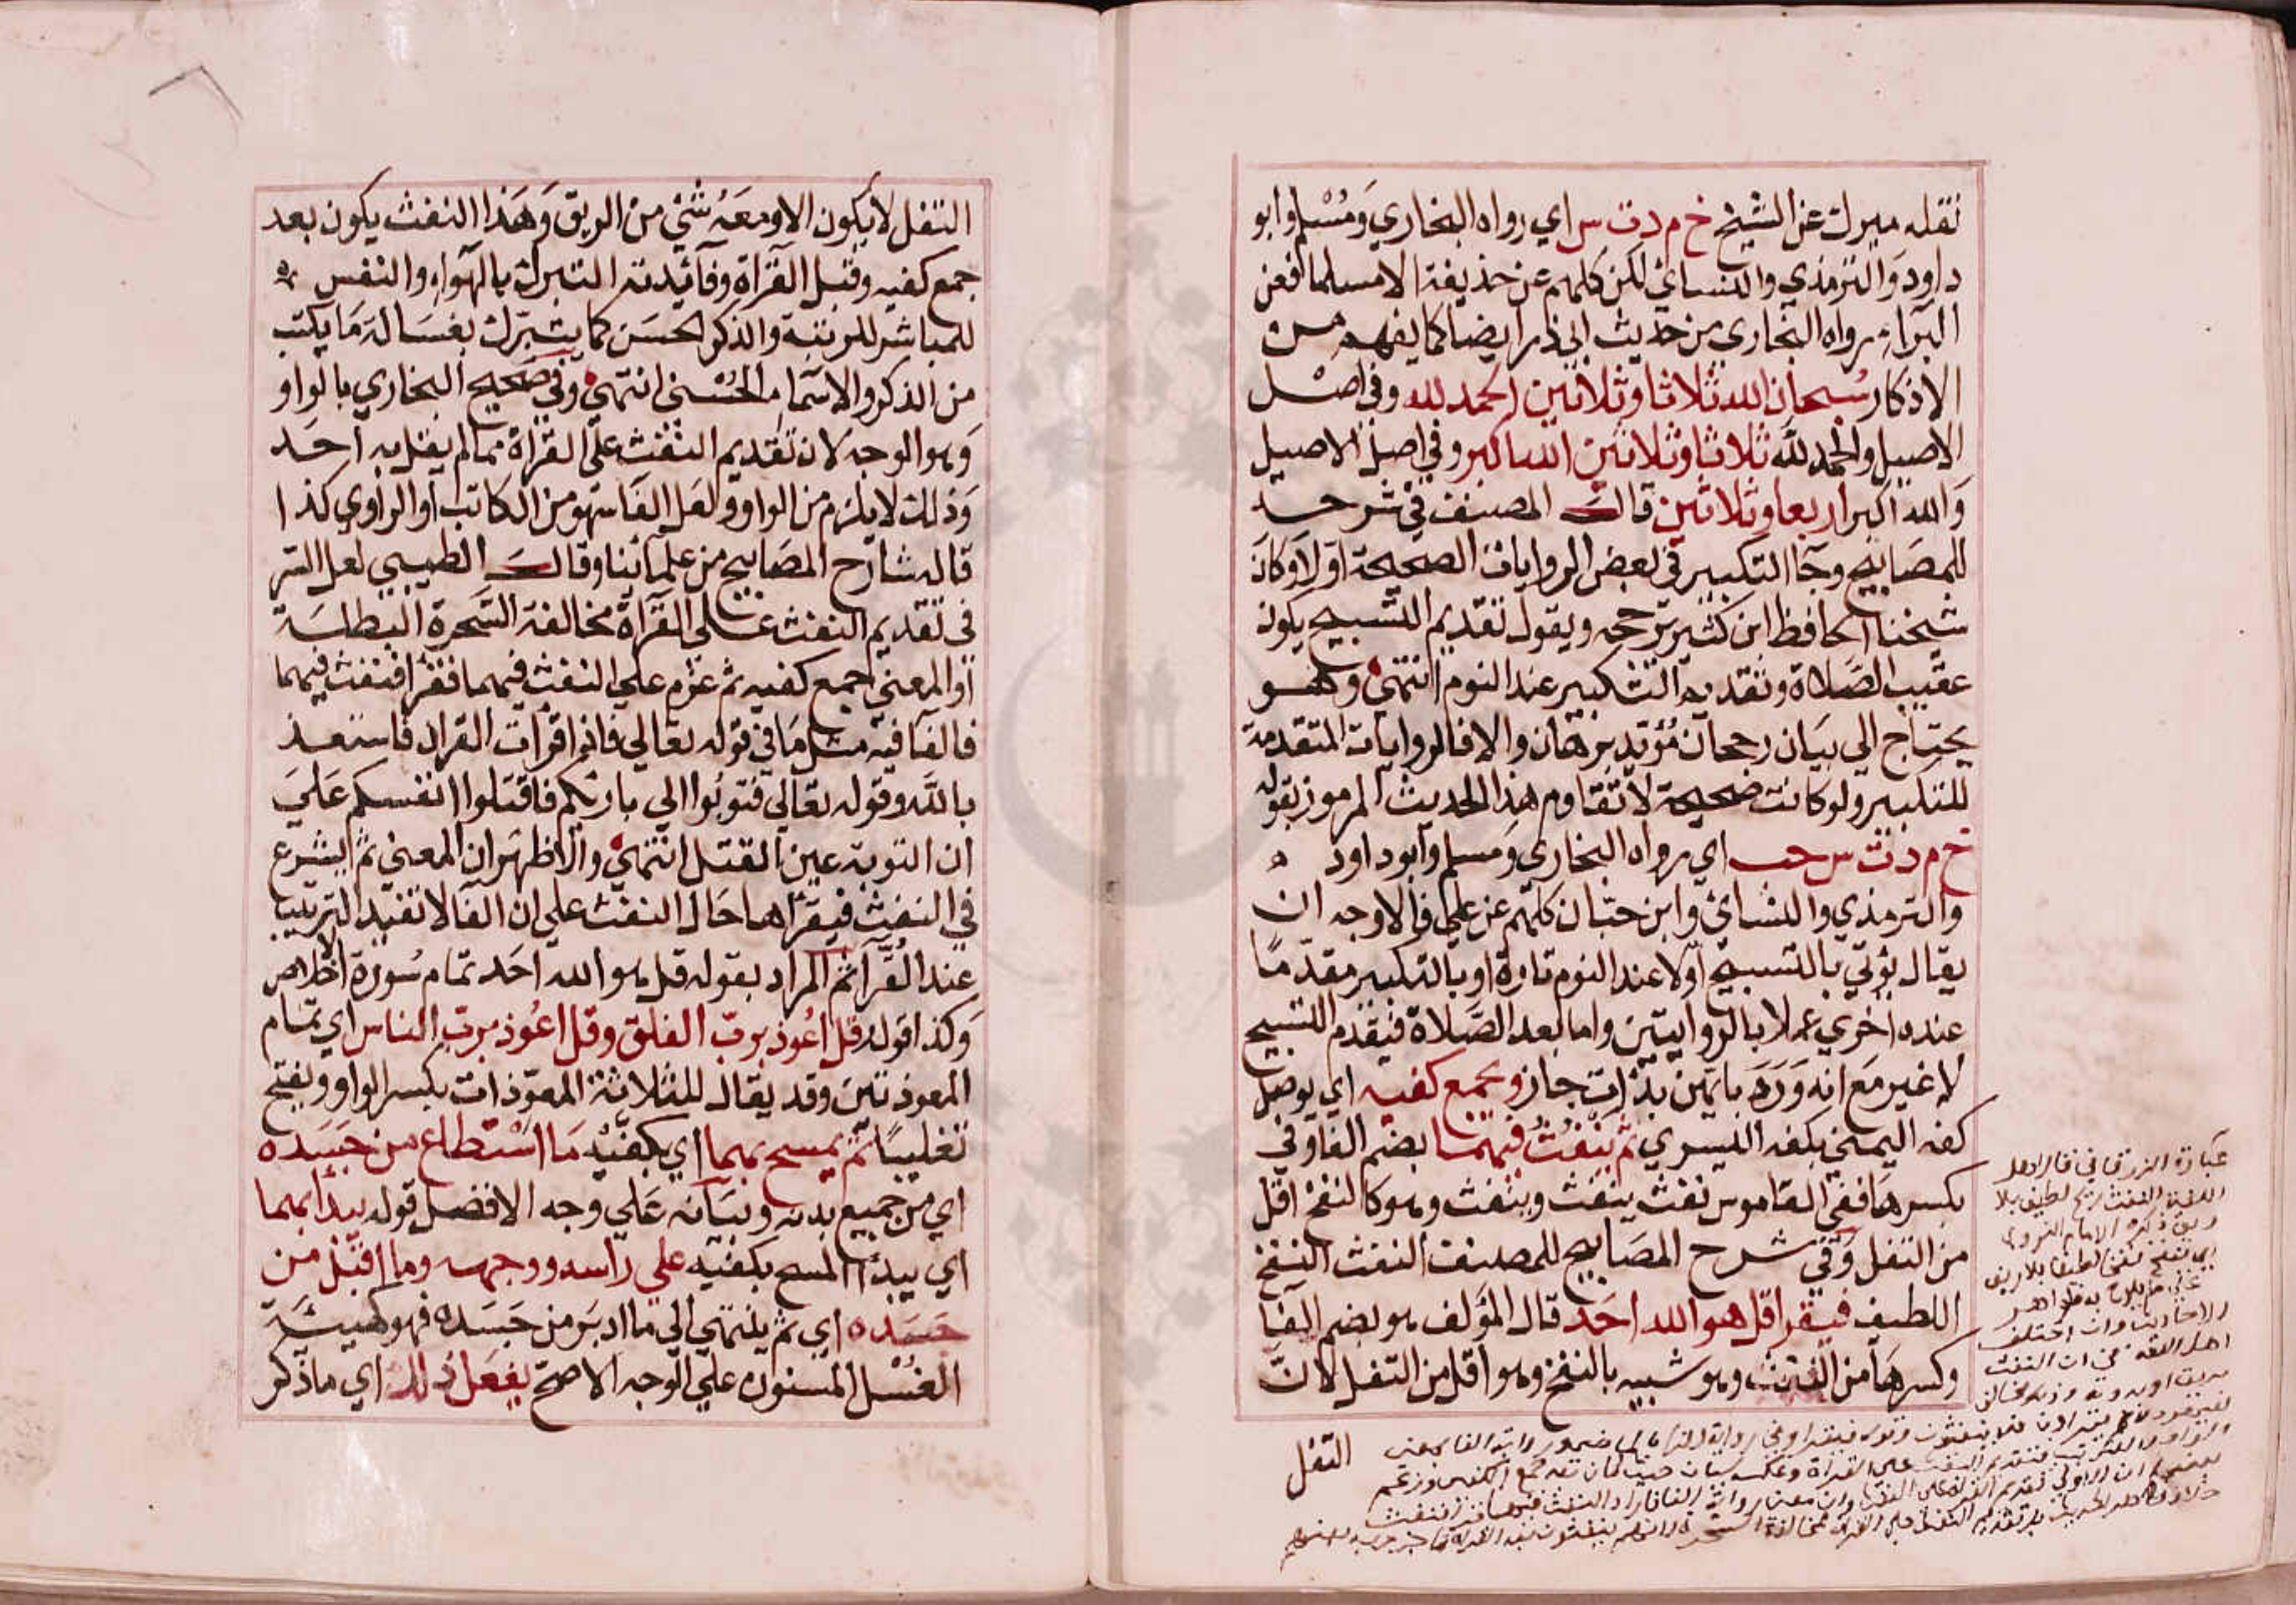 نقله ميرك عن الشيخ خ م د ت س اي رواه البخاري ومسلم وابو
داود والترمذي والنسائي لكن كلهم عن حذيفة الا مسلما فعن
البراء ورواه البخاري من حديث ابي ذر ايضا كما يفهم من
الاذكار سبحان الله ثلاثا وثلاثين الحمد لله وفي اصل
الاصيل والحمد لله ثلاثا وثلاثين الله اكبر وفي اصل الاصيل
والله اكبر اربعا وثلاثين قال المصنف في شرحه
للمصابيح وجا التكبير في بعض الروايات الصحيحة اولا وكان
شيخنا الحافظ ابن كثير يرجحه ويقول تقديم التسبيح يكون
عقيب الصلاة وتقديم التكبير عند النوم انتهى وهو
يحتاج الي بيان رجحان مؤيد برهان والا فالروايات المتقدمة
للتكبير ولو كانت صحيحة لا تقاوم هذا الحديث المرموز بقوله
خ م د ت س حب اي رواه البخاري ومسلم وابو داود
والترمذي والنسائي وابن حبان كلهم عن علي فالاوجه ان
يقال يؤتي بالتسبيح اولا عند النوم تارة او بالتكبير مقدما
عنده اخري عملا بالروايتين واما بعد الصلاة فيقدم التسبيح
لا غير مع انه ورد بايهن بدات جاز ويجمع كفيه اي يوصل
كفه اليمني بكفه اليسري ثم ينفث فيهما بضم الفا وفي
بكسرها ففي القاموس نفث ينفث وينفث وهو كالنفخ اقل
من التفل وفي شرح المصابيح للمصنف النفث النفخ
اللطيف فيقرا قل هو الله احد قال المؤلف هو بضم الفا
وكسرها من النفث وهو شبيه بالنفخ وهو اقل من التفل لان
التفل
عبارة الزرقاني قال اهل
اللغة النفث ريح لطيف بلا
ريق ذكره الامام النووي
اي نفخ نفخا لطيفا بلا ريق
التفل لا يكون الا ومعه شئي من الريق وهذا النفث يكون بعد
جمع كفيه وقبل القراة وفائدته التبرك بالهواء والنفس
للمباشر للرقية والذكر الحسن كما يتبرك بغسالة ما يكتب
من الذكر والاسماء الحسنى انتهي وفي صحيح البخاري بالواو
وهو الوجه لان تقديم النفث علي القراة مما لم يقل به احد
وذلك لا يلزم من الواو ولعل الفا سهو من الكاتب او الراوي كذا
قاله شارح المصابيح من علمائنا وقال الطيبي لعل السر
في تقديم النفث على القراة مخالفة السحرة البطلة
او المعني جمع كفيه ثم عزم علي النفث فيهما فقرا فنفث فيهما
فالفا فيه مثل ما في قوله تعالي فاذا قرات القران فاستعذ
بالله وقوله تعالي فتوبوا الي بارئكم فاقتلوا انفسكم علي
ان التوبة عين القتل انتهي والاظهر ان المعني ثم يشرع
في النفث فيقراهما حال النفث علي ان الفا لا تفيد الترتيب
عند الفرا ثم المراد بقوله قل هو الله احد تمام سورة الاخلاص
وكذا قوله قل اعوذ برب الفلق وقل اعوذ برب الناس اي تمام
المعوذتين وقد يقال للثلاثة المعوذات بكسر الواو وبفتح
تغليبا ثم يمسح بهما اي بكفيه ما استطاع من جسده
اي من جميع بدنه وبيانه علي وجه الافضل قوله يبدا بهما
اي يبدا المسح بكفيه علي راسه ووجهه وما اقبل من
جسده اي ثم ينتهي الي ما ادبر من جسده فهو كهيئة
الغسل المسنون علي الوجه الاصح يفعل ذلك اي ما ذكر